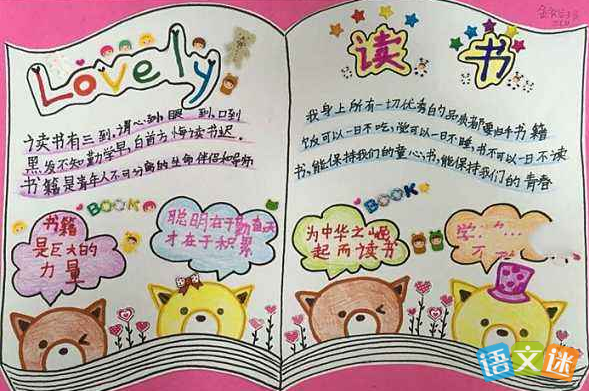 Lovely
读书有三到,谓心到,眼到,口到
黑发不知勤学早,白首方悔读书迟.
书籍是青年人不可分离的生命伴侣和导师
BOOK
书籍
是巨大的
力量
聪明在于勤奋天
才在于积累
读书
我身上所有一切优秀的品质都要归于书籍
饭可以一日不吃,觉可以一日不睡,书不可以一日不读
书,能保持我们的童心;书,能保持我们的青春
BOOK
为中华之崛
起而读书
学
不
语文迷